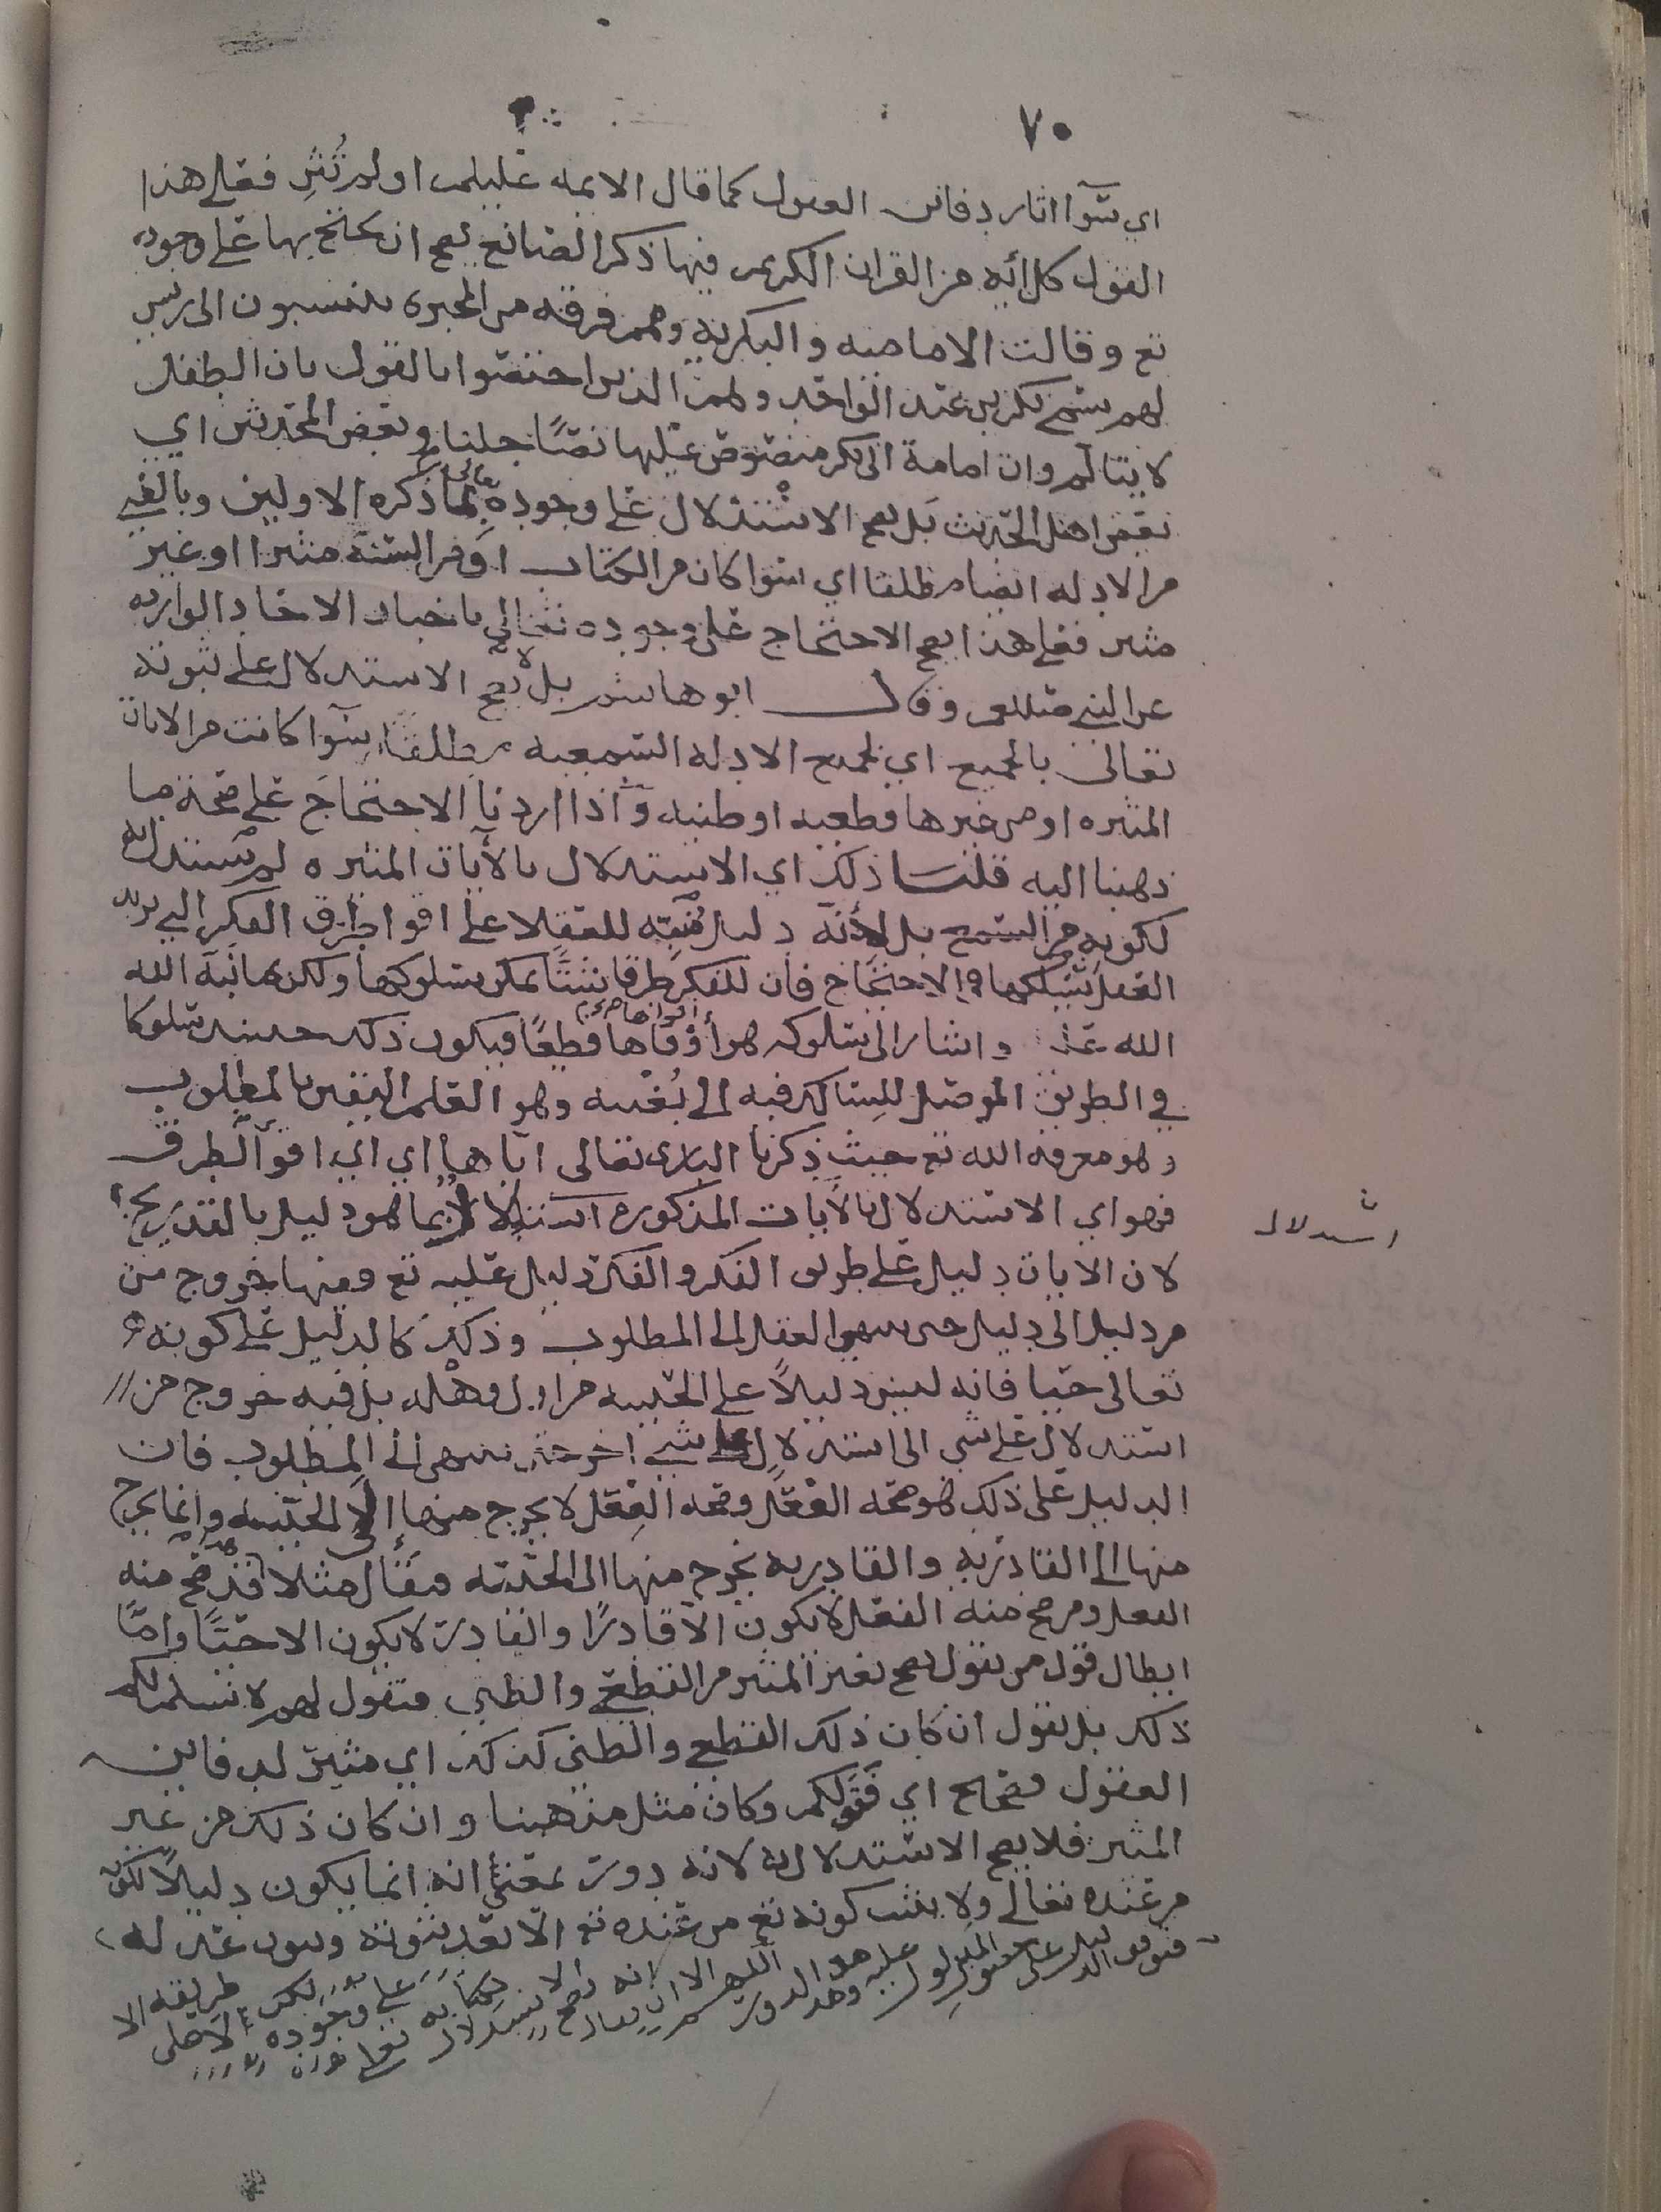 ٧٠
اي سوآ اثار دفائن العقول كما قال الايمه عليلم اولم تُثِر فعلى هذا
القول كل آيه من القران الكريم فيها ذكر الصانع يصح ان يحتج بها على وجوده
تع وقالت الاماميه والبكريه وهم فرقه من المجبره ينتسبون الى رئيس
لهم يسمى بكر بن عبد الواحد وهم الذين اختصوا بالقول بان الطفل
لا يتالم وان امامة ابي بكر منصوص عليها نصًا جليا وبعض المحدثين اي
بعض اهل الحديث بل يصح الاستدلال على وجوده تعالى بما ذكره الاولين وبالغير
من الادله ايضا مطلقا اي سوا كان من الكتاب او من السنه مثيرا او غير
مثير فعلى هذا يصح الاحتجاج على وجوده تعالى باخبار الاحاد الوارده
عن النبي صللم وقال ابو هاشم بل لا يصح الاستدلال على ثبوته
تعالى بالجميع اي بجميع الادله السمعيه مطلقًا سوآ كانت من الايات
المثيره او من غيرها قطعيه او ظنيه وآذا اردنا الاحتجاج على صحة ما
ذهبنا اليه قلنا ذلك اي الاستدلال بالآيات المثيره لم نستدل به
لكونه من السمع بل لأنه دليل مُنَبِّه للعقلا على اقوا طرق الفكر التي يريد
العقل تسلكها في الاحتجاج فان للفكر طرقا شتًا يمكن سلوكها ولكن ما نبه الله
الله عز واشار الى سلوكه هو أقواها قطعًا فيكون ذلك حينئذ سلوكا
في الطريق الموصل للسالك فيه الى بُغيه وهو العلم اليقين بالمطلوب
وهو معرفه الله تع حيث ذكرنا الباري تعالى اياها اي اي اقوآ الطرق
فهو اي الاستدلال بالآيات المذكوره استدلالا لا بما هو دليل بالتدريج
استدلال
لان الايات دليل على طريق الفكر والفكر دليل عليه تع ففيها خروج من
من دليل الى دليل حتى ينتهي العقل الى المطلوب وذلك كالدليل على كونه
تعالى حيّا فانه ليس دليلاً على الحييه من اول وهله بل فيه خروج من
استدلال على شي الى استدلال على شيء اخر حتى ينتهي الى المطلوب فان
الدليل على ذلك هو صحه الفعل وصحه الفعل لا يخرج منها الى الحييه وانما يخرج
منها الى القادريه والقادريه يخرج منها الى الحييه فيقال مثلا قد صح منه
الفعل ومن صح منه الفعل لا يكون الا قادرًا والقادر لا يكون الا حيًّا وامّا
ابطال قول من يقول يصح بغير المثير من القطعي والظني فنقول لهم لا نسلم لكم
ذلك بل نقول ان كان ذلك القطعي والظني كذلك اي مثير لدفائن
العقول فصحيح اي قولكم وكان مثل مذهبنا وان كان ذلك من غير
المثير فلا يصح الاستدلال به لانه دور بمعنى انه انما يكون دليلاً لكونه
من عنده تعالى ولا يثبت كونه تع من عنده تع الا بعد ثبوته